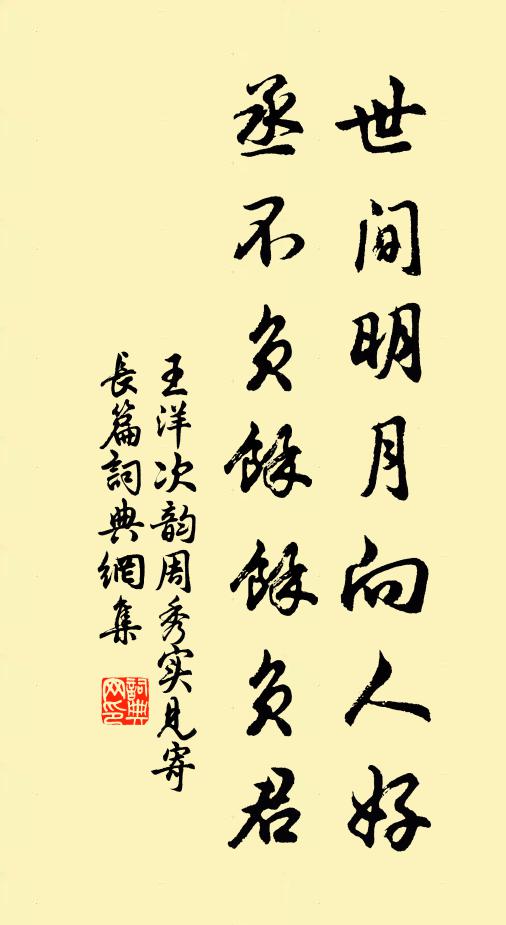 世间明月向人好
丞不负餘餘负君
王洋次韵周秀实见寄
長篇詞典網集
詞典
网印